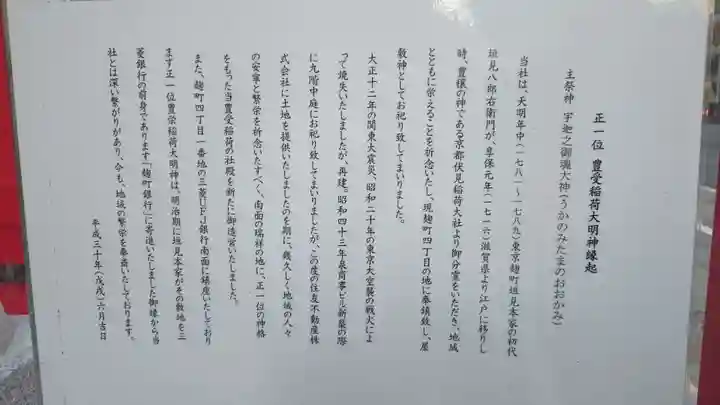 正一位 豊受稲荷大明神縁起
主祭神 宇迦之御魂大神(うかのみたまのおおかみ)
当社は、天明年中(一七八一~一七八九)東京麹町垣見本家の初代
垣見八郎右衛門が、享保元年(一七一六)滋賀県より江戸に移りし
時、豊穣の神である京都伏見稲荷大社より御分霊をいただき、地域
とともに栄えることを祈念いたし、現麹町四丁目の地に奉鎮致し、屋
敷神としてお祀り致してまいりました。
大正十二年の関東大震災、昭和二十年の東京大空襲の戦火によ
って焼失いたしましたが、再建。昭和四十三年泉商事ビル新築の際
に九階中庭にお祀り致してまいりましたが、この度の住友不動産株
式会社に土地を提供いたしましたのを期に、幾久しく地域の人々
の安寧と繁栄を祈念いたすべく、南面の瑞祥の地に、正一位の神格
をもった当豊受稲荷の社殿を新たに御造営いたしました。
また、麹町四丁目一番地の三菱UFJ銀行南面に鎮座いたしており
ます正一位豊栄稲荷大明神は、明治期に垣見本家がその敷地を三
菱銀行の前身であります「麹町銀行」に寄進いたしました御縁から当
社とは深い繋がりがあり、今も、地域の繁栄を奉斎いたしております。
平成三十年(戊戌)六月吉日